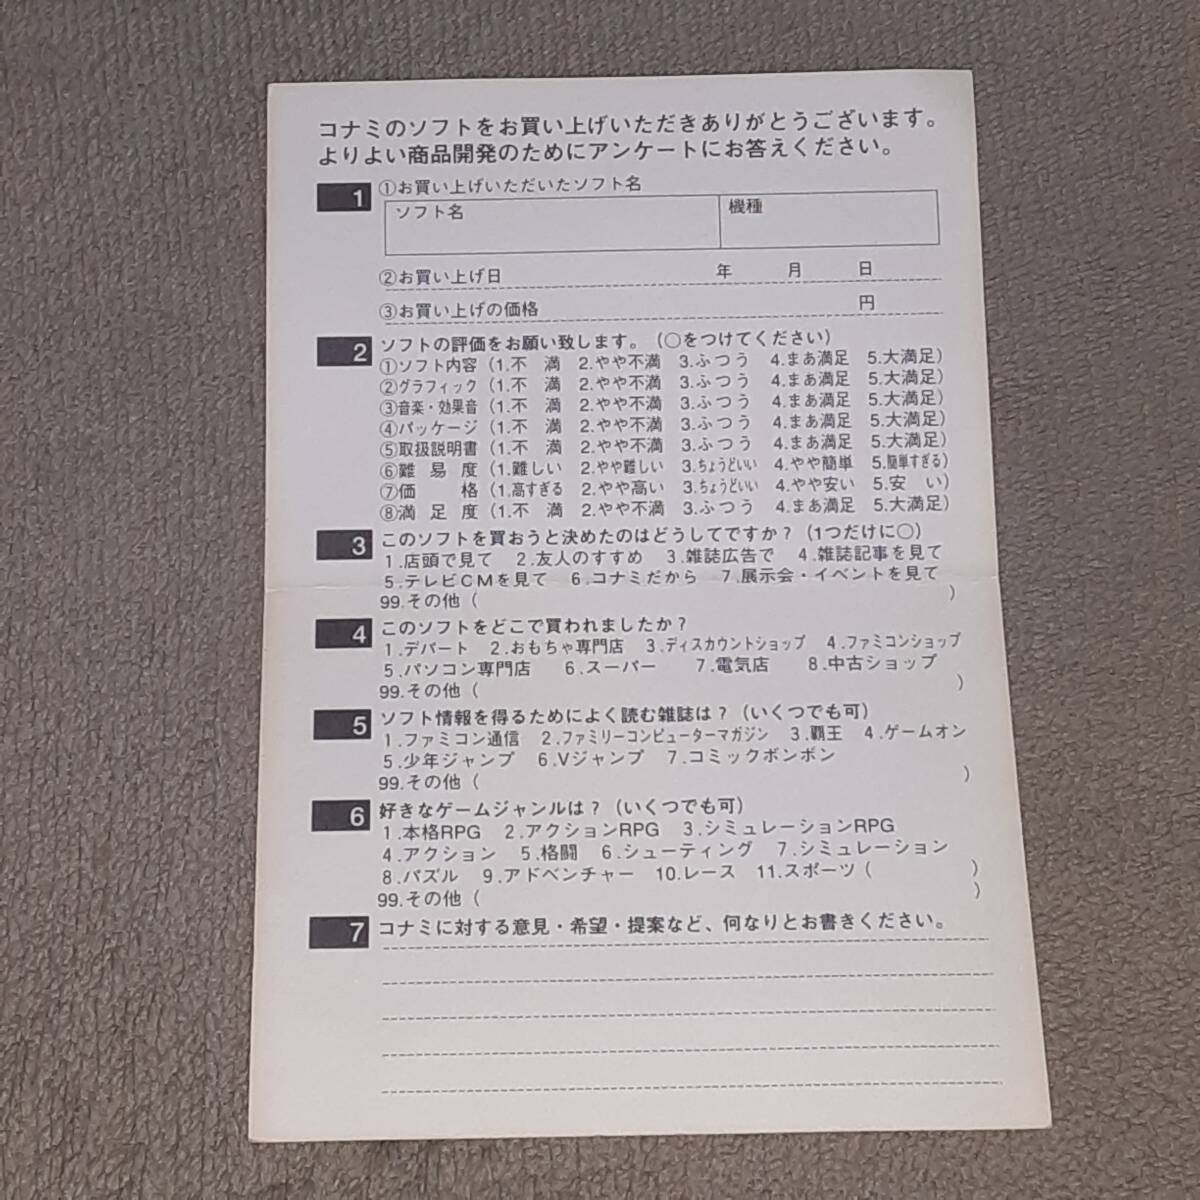 コナミのソフトをお買い上げいただきありがとうございます。
よりよい商品開発のためにアンケートにお答えください。
1 ①お買い上げいただいたソフト名
ソフト名 機種
②お買い上げ日 年 月 日
③お買い上げの価格 円
2 ソフトの評価をお願い致します。(○をつけてください)
①ソフト内容 (1.不 満 2.やや不満 3.ふつう 4.まあ満足 5.大満足)
②グラフィック (1.不 満 2.やや不満 3.ふつう 4.まあ満足 5.大満足)
③音楽・効果音 (1.不 満 2.やや不満 3.ふつう 4.まあ満足 5.大満足)
④パッケージ (1.不 満 2.やや不満 3.ふつう 4.まあ満足 5.大満足)
⑤取扱説明書 (1.不 満 2.やや不満 3.ふつう 4.まあ満足 5.大満足)
⑥難易度 (1.難しい 2.やや難しい 3.ちょうどいい 4.やや簡単 5.簡単すぎる)
⑦価 格 (1.高すぎる 2.やや高い 3.ちょうどいい 4.やや安い 5.安 い)
⑧満足度 (1.不 満 2.やや不満 3.ふつう 4.まあ満足 5.大満足)
3 このソフトを買おうと決めたのはどうしてですか?(1つだけに○)
1.店頭で見て 2.友人のすすめ 3.雑誌広告で 4.雑誌記事を見て
5.テレビCMを見て 6.コナミだから 7.展示会・イベントを見て
99.その他( )
4 このソフトをどこで買われましたか?
1.デパート 2.おもちゃ専門店 3.ディスカウントショップ 4.ファミコンショップ
5.パソコン専門店 6.スーパー 7.電気店 8.中古ショップ
99.その他( )
5 ソフト情報を得るためによく読む雑誌は?(いくつでも可)
1.ファミコン通信 2.ファミリーコンピューターマガジン 3.覇王 4.ゲームオン
5.少年ジャンプ 6.Vジャンプ 7.コミックボンボン
99.その他( )
6 好きなゲームジャンルは?(いくつでも可)
1.本格RPG 2.アクションRPG 3.シミュレーションRPG
4.アクション 5.格闘 6.シューティング 7.シミュレーション
8.パズル 9.アドベンチャー 10.レース 11.スポーツ( )
99.その他( )
7 コナミに対する意見・希望・提案など、何なりとお書きください。